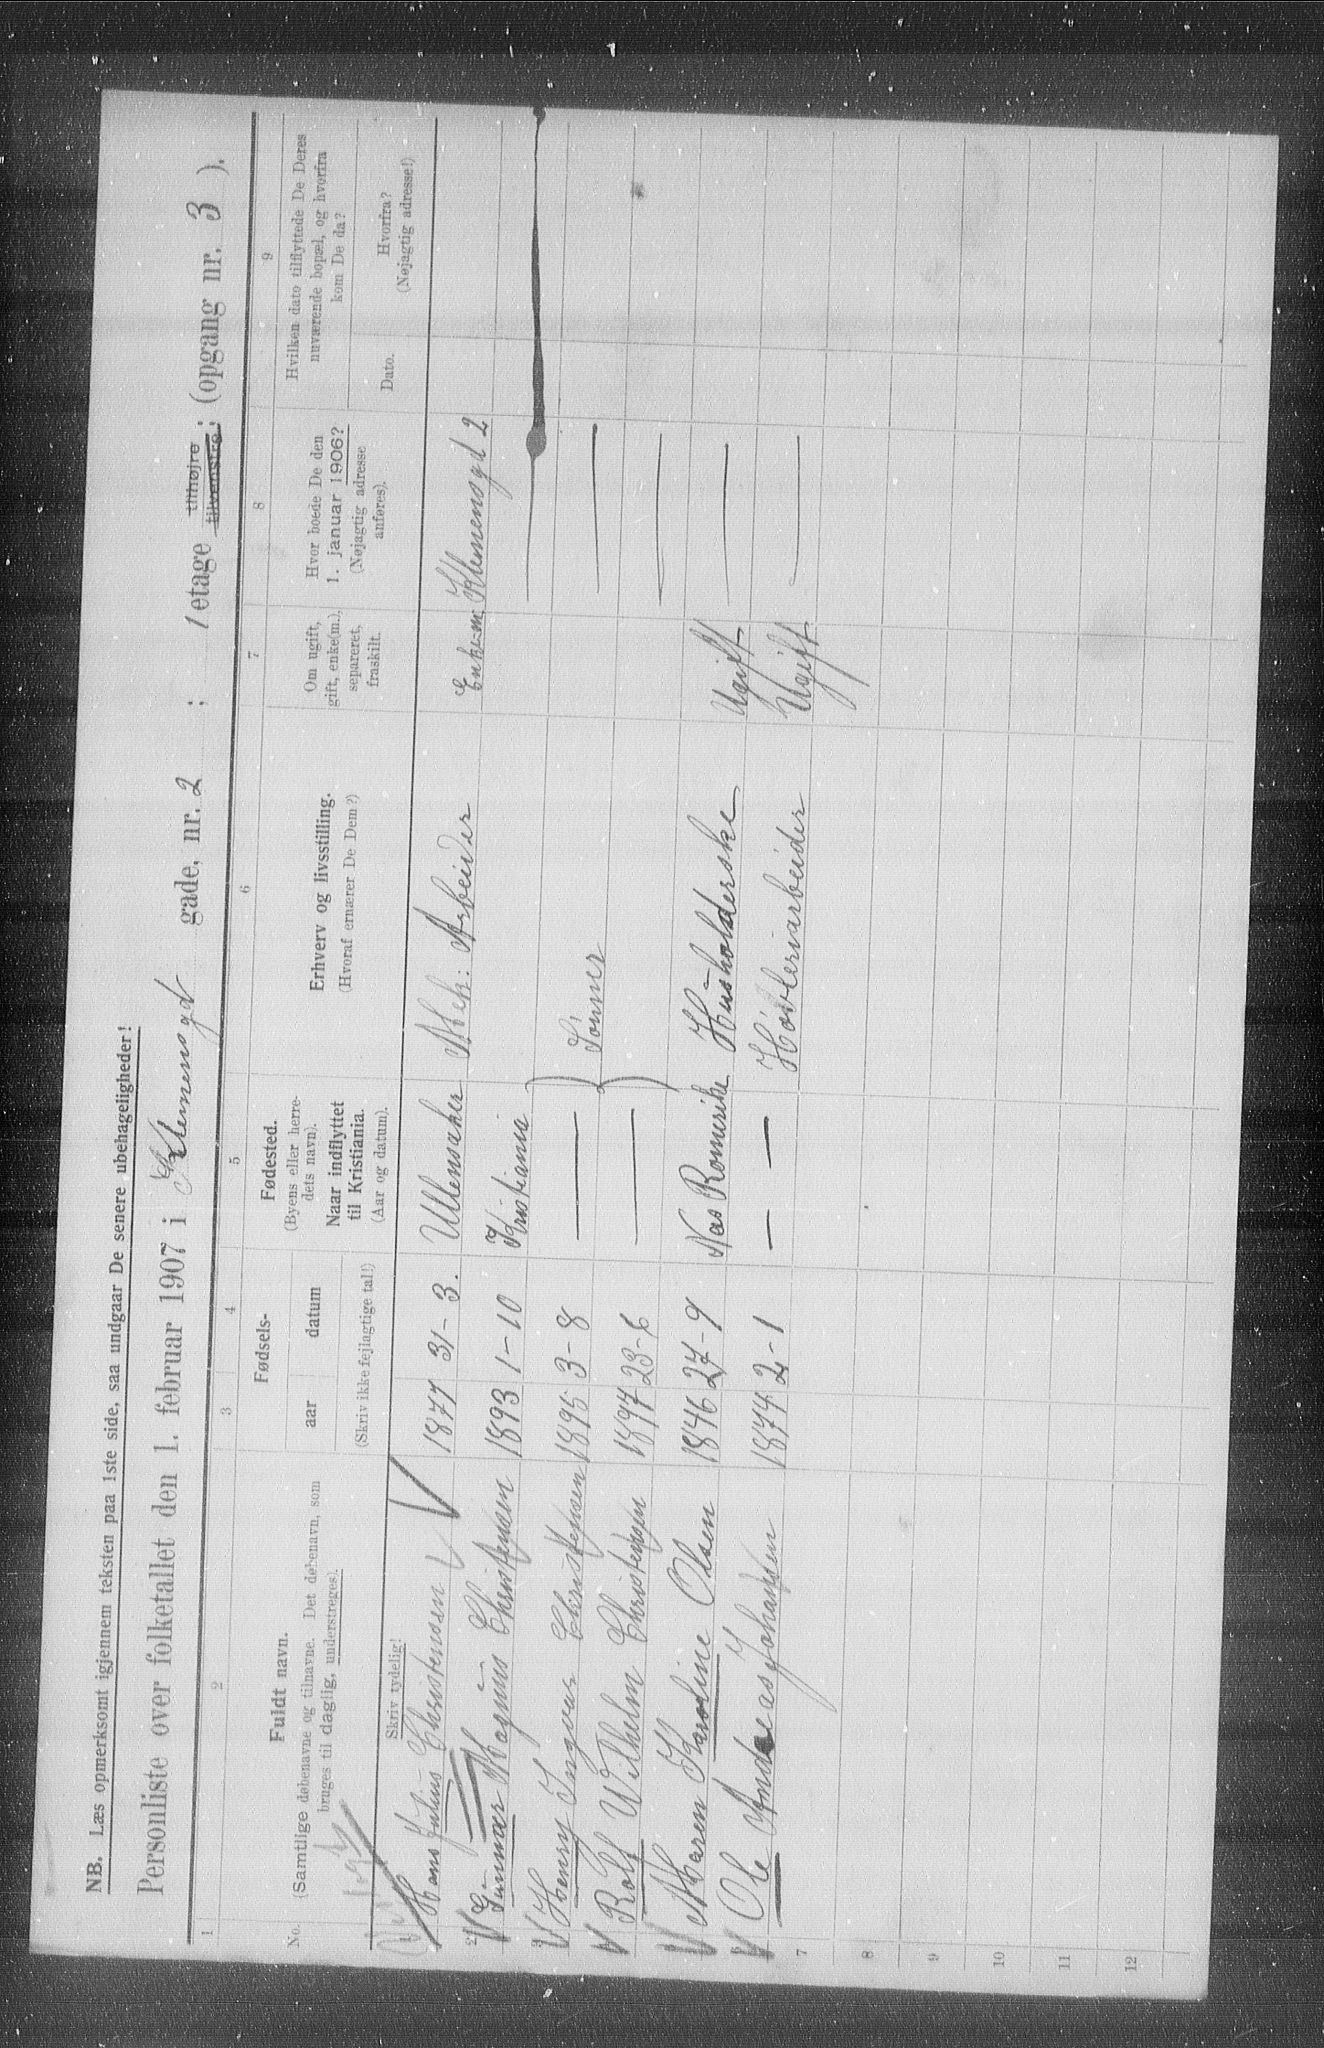 NB. Læs opmerksomt igjennem teksten paa 1ste side, saa undgaar De senere ubehageligheder!
Personliste over folketallet den 1. februar 1907 i Klemensgt gade, nr. 2 ; 1 etage tilhøjre tilvenstre; (opgang nr. 3 ).
1 2 3 4 5 6 7 8 9
No.
Fuldt navn.
(Samtlige døbenavne og tilnavne. Det døbenavn, som
bruges til daglig, understreges).
Skriv tydelig!
Fødsels-
aar datum
(Skriv ikke fejlagtige tal!)
Fødested.
(Byens eller herre-
dets navn).
Naar indflyttet
til Kristiania.
(Aar og datum).
Erhverv og livsstilling.
(Hvoraf ernærer De Dem?)
Om ugift,
gift, enke(m.),
separeret,
fraskilt.
Hvor boede De den
1. januar 1906?
(Nøjagtig adresse
anføres).
Hvilken dato tilflyttede De Deres
nuværende bopæl, og hvorfra
kom De da?
Dato.
Hvorfra?
(Nøjagtig adresse!)
Hans Julius Christensen 1877 31-3. Ullensaker Mek: Arbeider Enkem. Klemensgd 2
2 Gunnar Magnus Christensen 1893 1-10 Kristiania
3 Henry Ingvar Christensen 1895 3-8 — } Sönner —
Rolf Wilhelm Christensen 1897 23-6 — —
Maren Karoline Olsen 1846 27-9 Nes Romerike Husholderske Ugift —
Ole Andreas Johansen 1874 2-1 — — Høvleriarbeider Ugift —
7
8
9
10
11
12